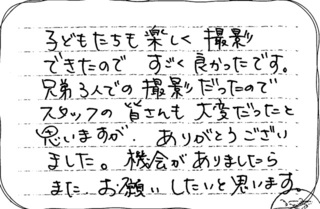 子どもたちも楽しく撮影
できたので すごく良かったです。
兄弟3人での撮影だったので
スタッフの皆さんも大変だったと
思いますが、ありがとうござい
ました。機会がありましたら
また お願いしたいと思います。